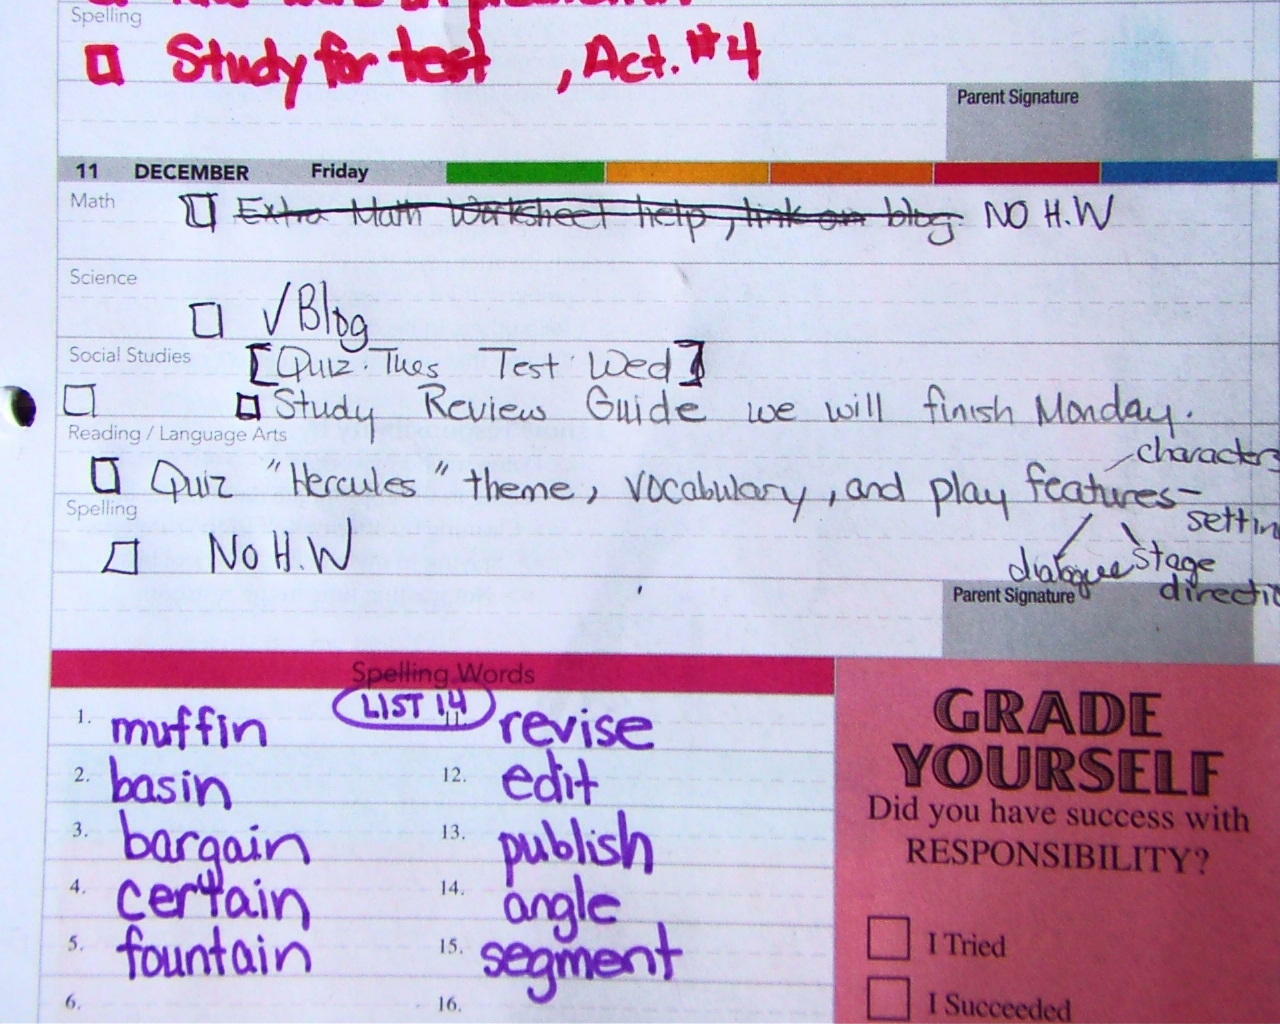 Spelling
Study for test , Act. #4
Parent Signature
11 DECEMBER Friday
Math
Extra Math Worksheet help, link on blog. NO H.W
Science
√Blog
Social Studies
[Quiz. Tues Test Wed]
Study Review Guide we will finish Monday.
Reading / Language Arts
characters
Quiz "Hercules" theme, vocabulary, and play features-
Spelling
settin
No H.W
dialogue stage
directi
Parent Signature
Spelling Words
LIST 14
1. muffin 11 revise
2. basin 12. edit
3. bargain 13. publish
4. certain 14. angle
5. fountain 15. segment
6. 16.
GRADE
YOURSELF
Did you have success with
RESPONSIBILITY?
I Tried
I Succeeded